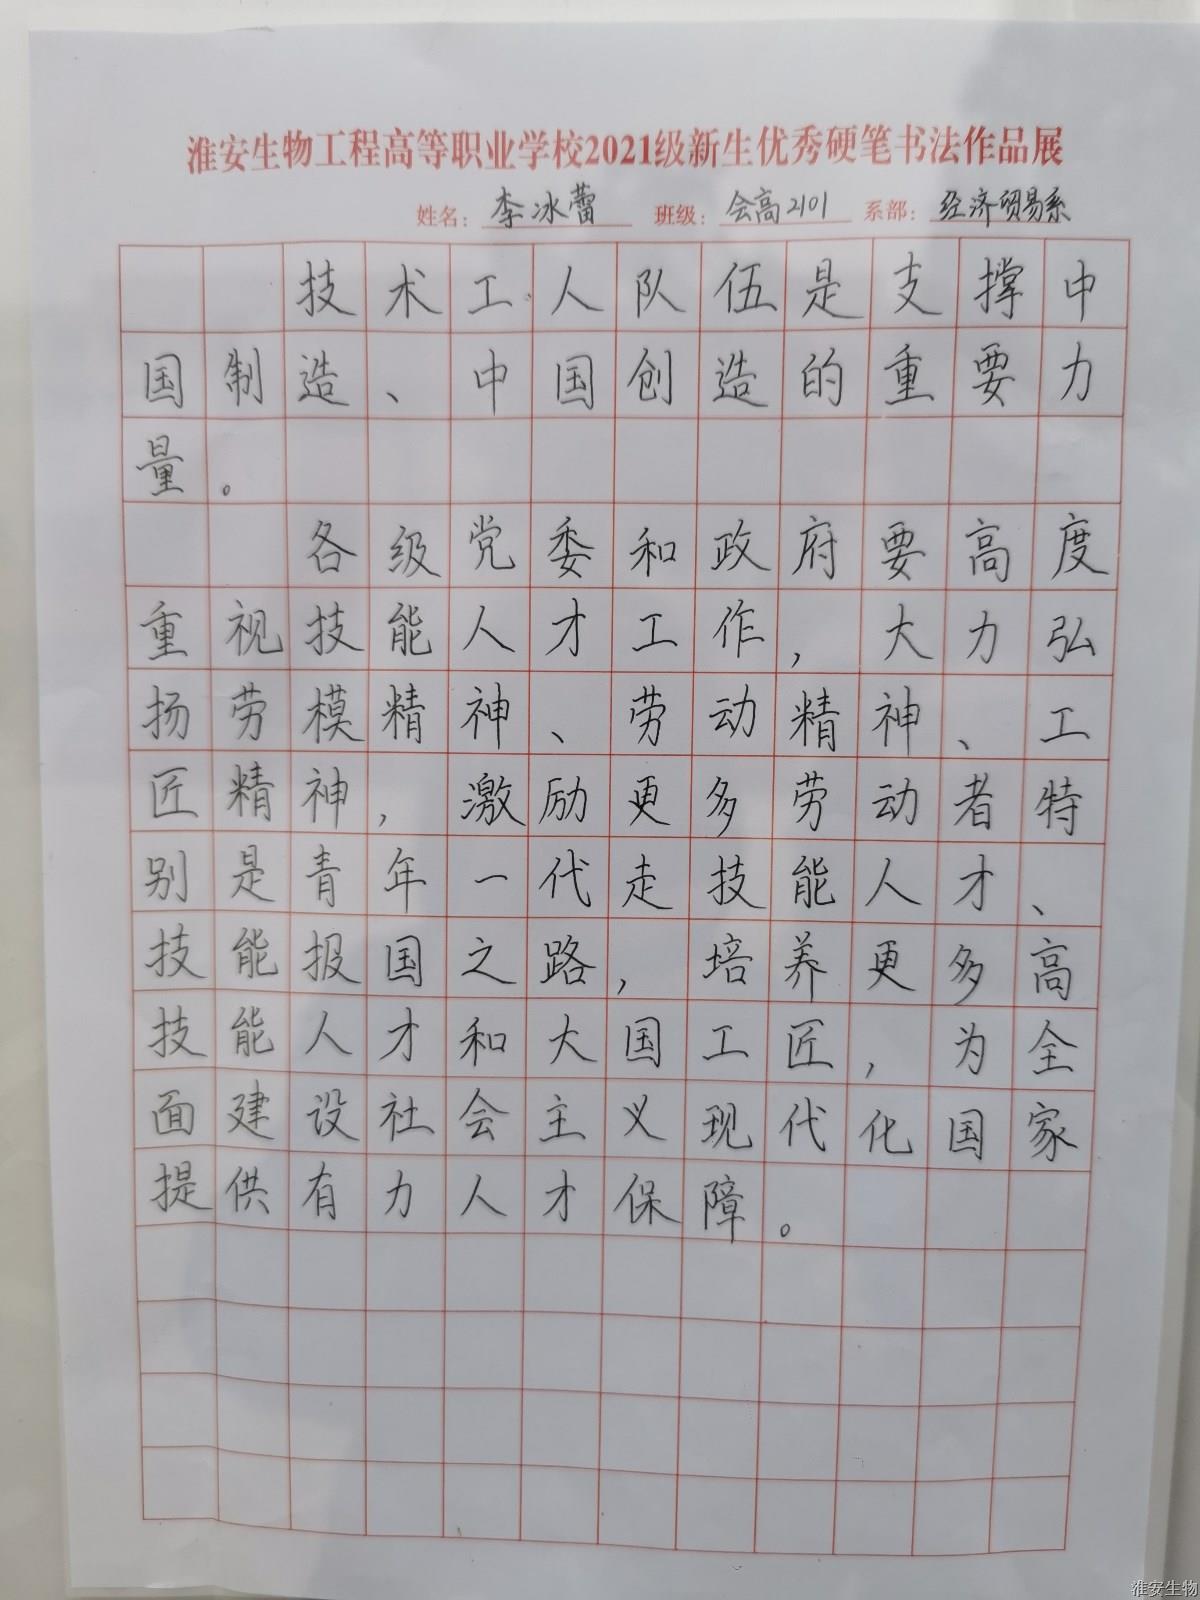 淮安生物工程高等职业学校2021级新生优秀硬笔书法作品展
姓名：李冰蕾 班级：会高2101 系部：经济贸易系
技术工人队伍是支撑中
国制造、中国创造的重要力
量。
各级党委和政府要高度
重视技能人才工作，大力弘
扬劳模精神、劳动精神、工
匠精神，激励更多劳动者特
别是青年一代走技能人才、
技能报国之路，培养更多高
技能人才和大国工匠，为全
面建设社会主义现代化国家
提供有力人才保障。
淮安生物